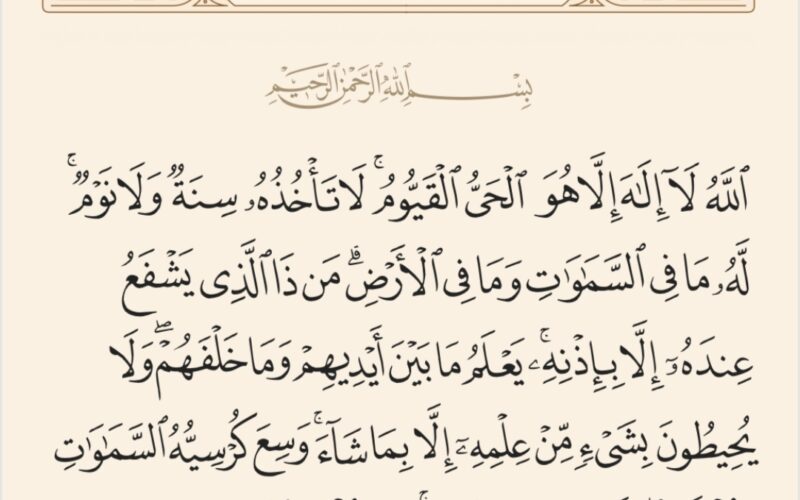 بِسْمِ ٱللَّهِ ٱلرَّحْمَٰنِ ٱلرَّحِيمِ
ٱللَّهُ لَآ إِلَٰهَ إِلَّا هُوَ ٱلْحَىُّ ٱلْقَيُّومُ ۚ لَا تَأْخُذُهُۥ سِنَةٌ وَلَا نَوْمٌ ۚ
لَّهُۥ مَا فِى ٱلسَّمَٰوَٰتِ وَمَا فِى ٱلْأَرْضِ ۗ مَن ذَا ٱلَّذِى يَشْفَعُ
عِندَهُۥٓ إِلَّا بِإِذْنِهِۦ ۚ يَعْلَمُ مَا بَيْنَ أَيْدِيهِمْ وَمَا خَلْفَهُمْ ۖ وَلَا
يُحِيطُونَ بِشَىْءٍ مِّنْ عِلْمِهِۦٓ إِلَّا بِمَا شَآءَ ۚ وَسِعَ كُرْسِيُّهُ ٱلسَّمَٰوَٰتِ